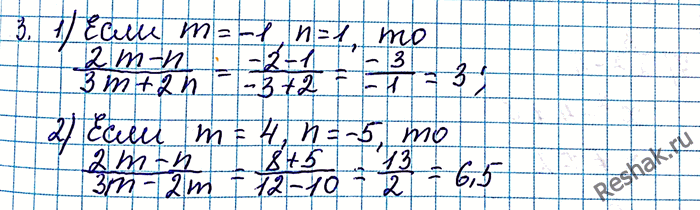 3. 1) Если m = -1, n = 1, то
(2m - n)/(3m + 2n) = (-2 - 1)/(-3 + 2) = (-3)/(-1) = 3;
2) Если m = 4, n = -5, то
(2m - n)/(3m - 2m) = (8 + 5)/(12 - 10) = 13/2 = 6,5
Reshak.ru